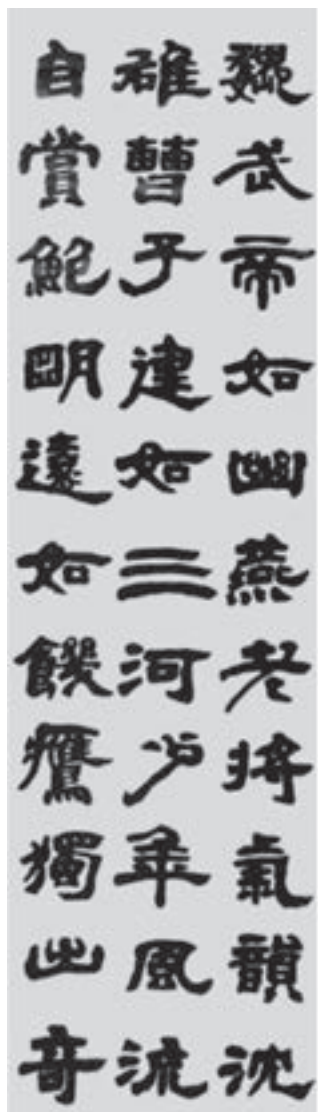 魏武帝如幽燕老將氣韻沈
雄曹子建如三河少年風流
自賞鮑明遠如饑鷹獨出奇